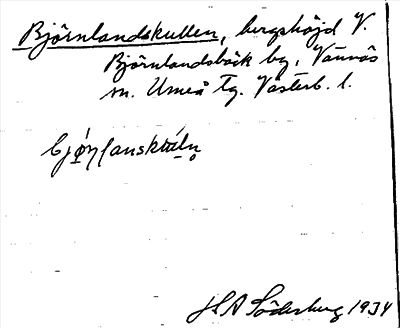 Björnlandskullen, bergshöjd V.
Björnlandsbäck by, Vännäs
sn. Umeå Tg. Västerb. l.
HSA Söderberg 1934